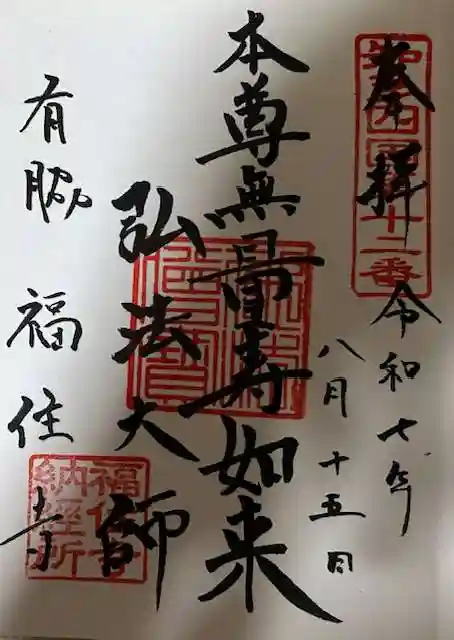 奉拝
令和七年
八月十五日
本尊無量寿如来
弘法大師
有脇 福住寺
十二番
福住寺
納経所